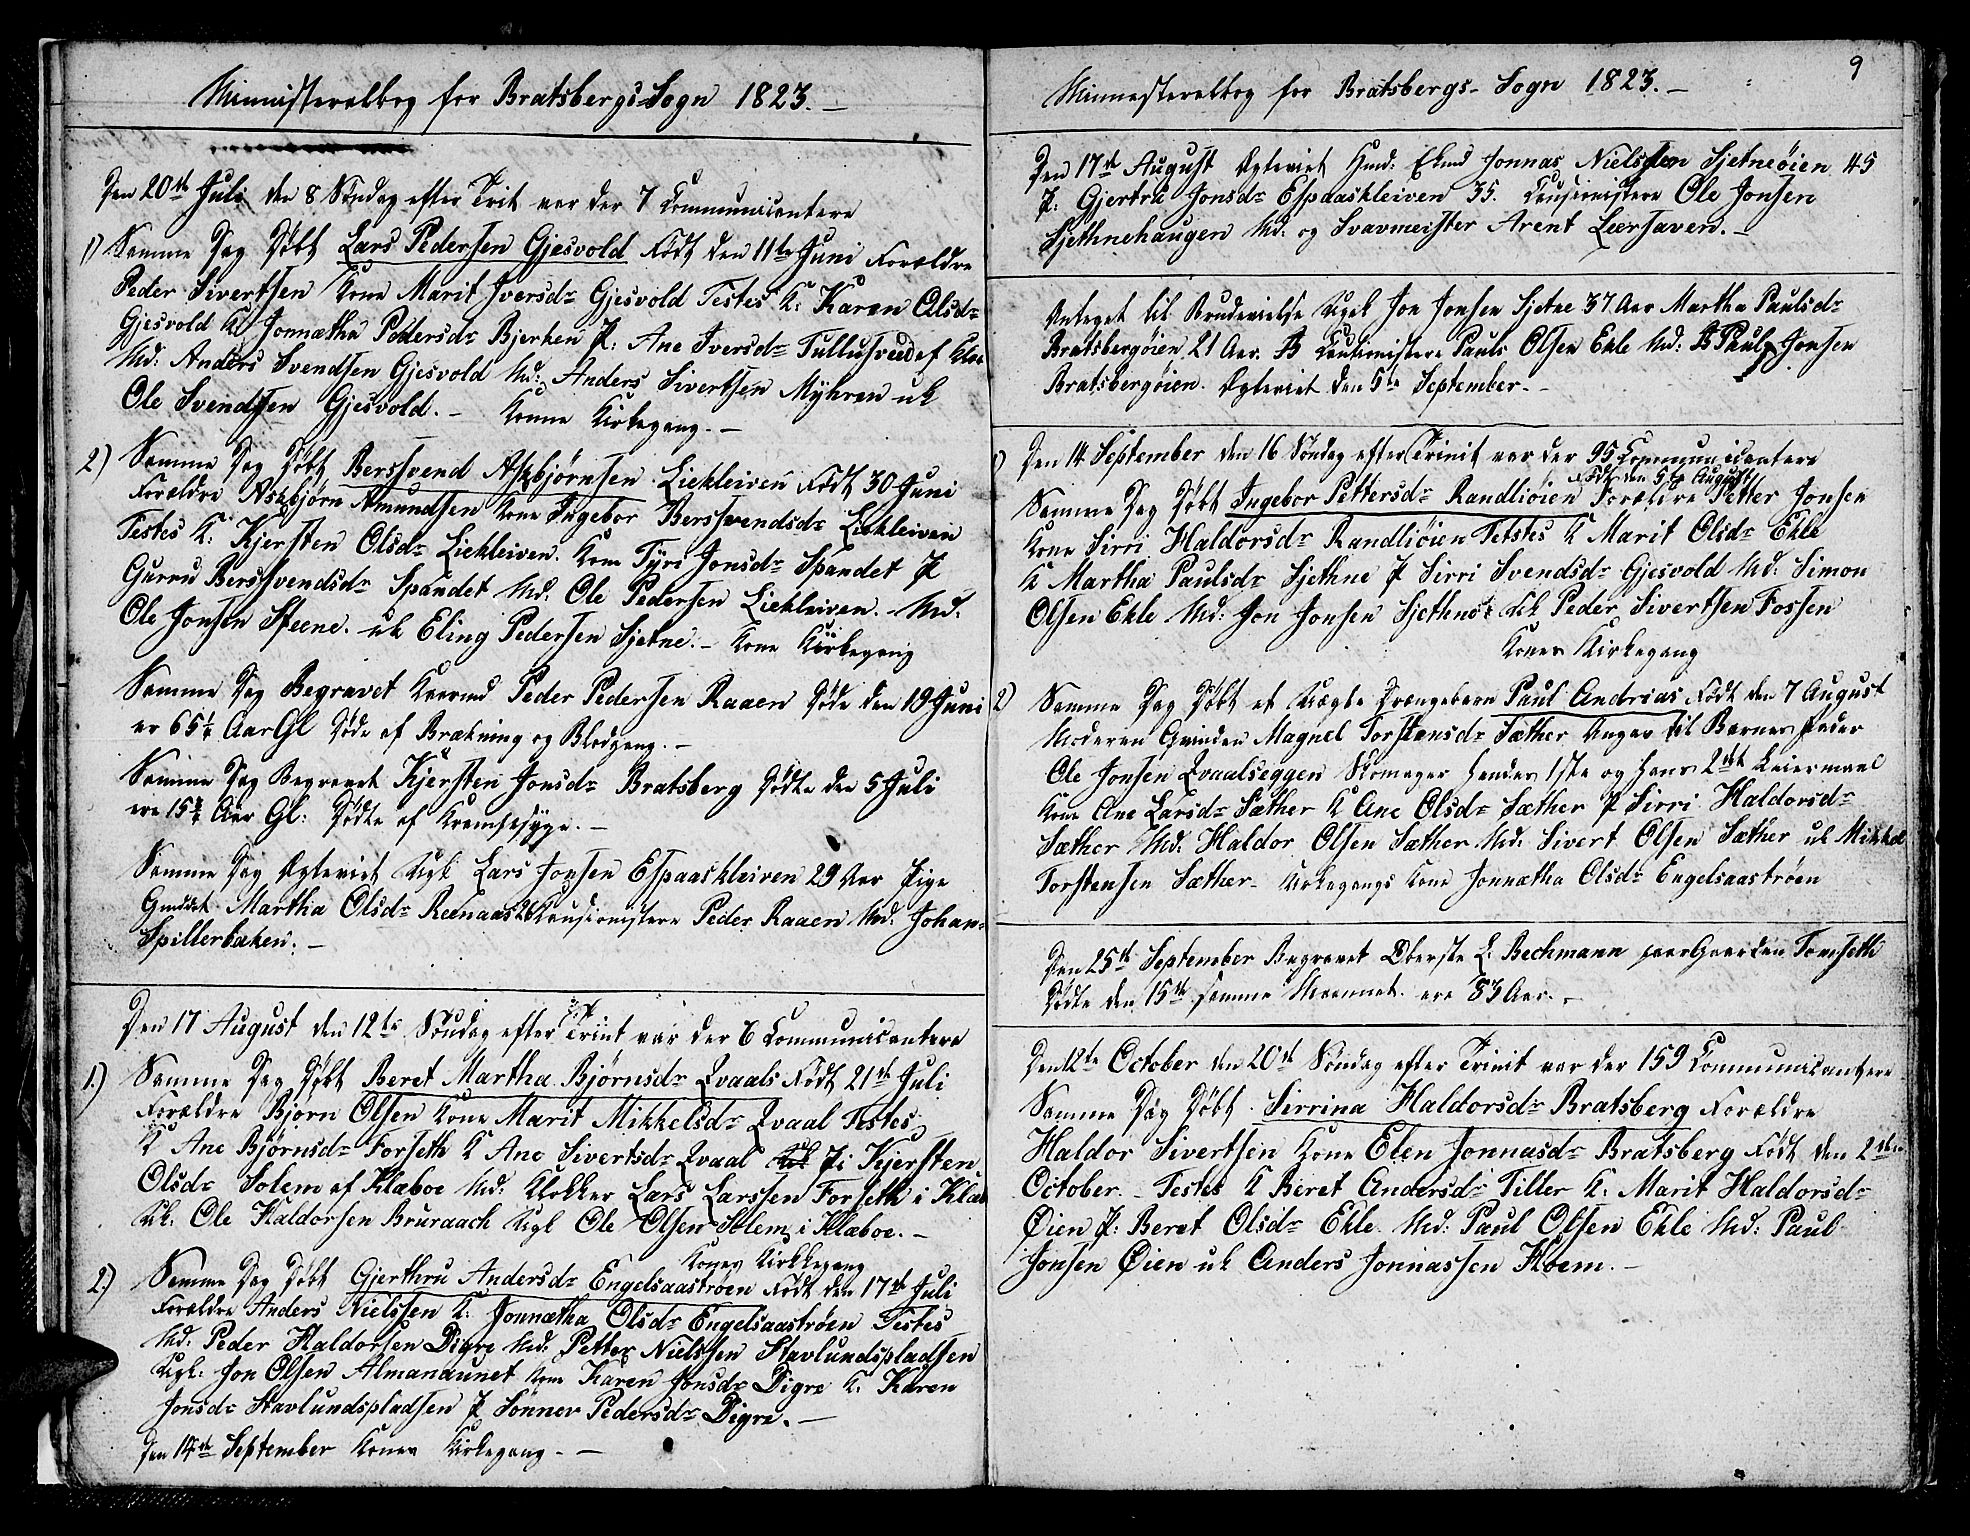 Ministeralbog for Bratsbergs Sogn 1823. –
Den 20de Juli den 8 Søndag efter Trit var der 7 Communicantere
1) Samme Dag Døbt Lars Pedersen Gjesvold Født den 11te Juni Forældre
Peder Sivertsen Kone Marit Iversdr Gjesvold Testes K: Karen Olsdr
Gjesvold K. Jonnætha Pedersdr Bjerken P: Ane Iversdr Tullusveed af Klæ
Md: Anders Svendsen Gjesvold Md: Anders Sivertsen Myhren uk
Ole Svendsen Gjesvold. – Konne Kirkegang. –
2) Samme Dag Døbt Bersvend Asbjørnsen Liekleiven Født 30 Juni
Forældre Asbjørn Amundsen Kone Ingebor Bersvendsdr Liekleiven
Testes K: Kjersten Olsdr Liekleiven. Kone Tyri Jonsdr Spandet P
Guruu Bersvendsdr Spandet Md. Ole Pedersen Liekleiven. Md.
Ole Jonsen Steene. uk Eling Pedersen Sjetne. – Kone Kirkegang
Samme Dag Begravet Peder Pedersen Raaen Døde den 19 Juni
er 65 Aar Gl Døde af Brækning og Blodgang. –
Samme Dag Begravet Kjersten Jonsdr Bratsberg Dødte den 5 Juli
ere 15 Aar Gl: Dødte af Krampesyge. –
Samme Dag Egteviet Ugk Lars Jonsen Espaaskleiven 29 Aar Pige
Martha Olsdr Reenaas 26 Peder Raaen Md. Johan
Spillerbaken. –
Den 17 August den 12te Søndag efter Trint var der 6 Communicantere
1.) Samme Dag Døbt Beret Martha Bjørnsdr Qvaals Født 21de Juli
Forældre Bjørn Olsen Kone Marit Mikkelsdr Qvaal Testes
K Ane Bjørnsdr Forseth K Ane Sivertsdr Qvaal Pi Kjersten
Olsdr Solem af Klæboe Md: Klokker Lars Larssen Forseth i Klæb
Uk: Ole Haldorsen Bruraach Ugk Ole Olsen Solem i Klæboe. –
Kones Kirkkegang
2.) Samme Dag Døbt Gjerthru Andersdr Engelsaastrøen Født den 17de Juli
Forældre Anders Nielssen K: Jonnætha Olsdr Engelsaastrøen Testes
Md: Peder Haldorsen Digre Md: Petter Nielssen Stavlundspladsen
Ugk: Jon Olsen Almanaunet Kone Karen Jonsdr Digre K: Karen
Jonsdr Stavlundspladsen P Sonnev Pedersdr Digre. –
Den 14de September Kones Kirkegang. –
9
Ministeralbog for Bratsbergs- Sogn 1823. –
Den 17de August Egteviet Jonnas Nielssen Sjetneøien 45
P: Gjertru Jonsdr Espaaskleiven 35. Ole Jonsen
Sjethnehaugen Md: og Arent Leersaven. –
Antaget til Brudevielse Ugk Jon Jonsen Sjetne 37 Aar Martha Paulsdr
Bratsbergøien 21 Aar. Pauls Olsen Ekle Md: Paul Jonsen
Bratsbergøien. Egteviet den 5te September. –
1) Den 14 September den 16 Søndag efter Trinit var der 95 Communicantere
Født den 5te August
Samme Dag Døbt Ingebor Pettersdr Randliøien Forældre Petter Jonsen
Kone Sirri Haldorsdr Randliøien Tetstes K Marit Olsdr Ekle
K Martha Paulsdr Sjethne P Sirri Svendsdr Gjesvold Md: Simon
Olsen Ekle Md: Jon Jonsen Sjethne uk Peder Sivertsen Fossen
Kones Kirkegang
2) Samme Dag Døbt et Uægte Drængebarn Paul Andrias Født den 7 August
Moderen Qvinden Magnel Torstensdr Sæther Angav til Barnes Fader
Ole Jonsen Qvaalseggen Skomager hendes 1ste og hans 2det Leiermaal
Kone Ane Larsdr Sæther K Ane Olsdr Sæther P Sirri Haldorsdr
Sæther Md. Haldor Olsen Sæther Md. Sivert Olsen Sæther uk Mikkel
Torstensen Sæther – Kirkegangs Kone Jonnætha Olsdr Engelsaastrøen
Den 25de September Begravet Oberste L: Bechmann paa Gaarden Tomseth
Dødte den 15de samme Maannet. ere 83 Aar. –
Den 12te October den 20de Søndag efter Trinit var der 159 Communicantere
Samme Dag Døbt. Sirrina Haldorsdr Bratsberg Forældre
Haldor Sivertsen Kone Elen Jonnasdr Bratsberg Født den 2den
October. – Testes K Beret Andersdr Tiller K: Marit Haldorsdr
Øien P: Beret Olsdr Ekle Md: Paul Olsen Ekle Md: Paul
Jonsen Øien uk Anders Jonnassen Hoem. –